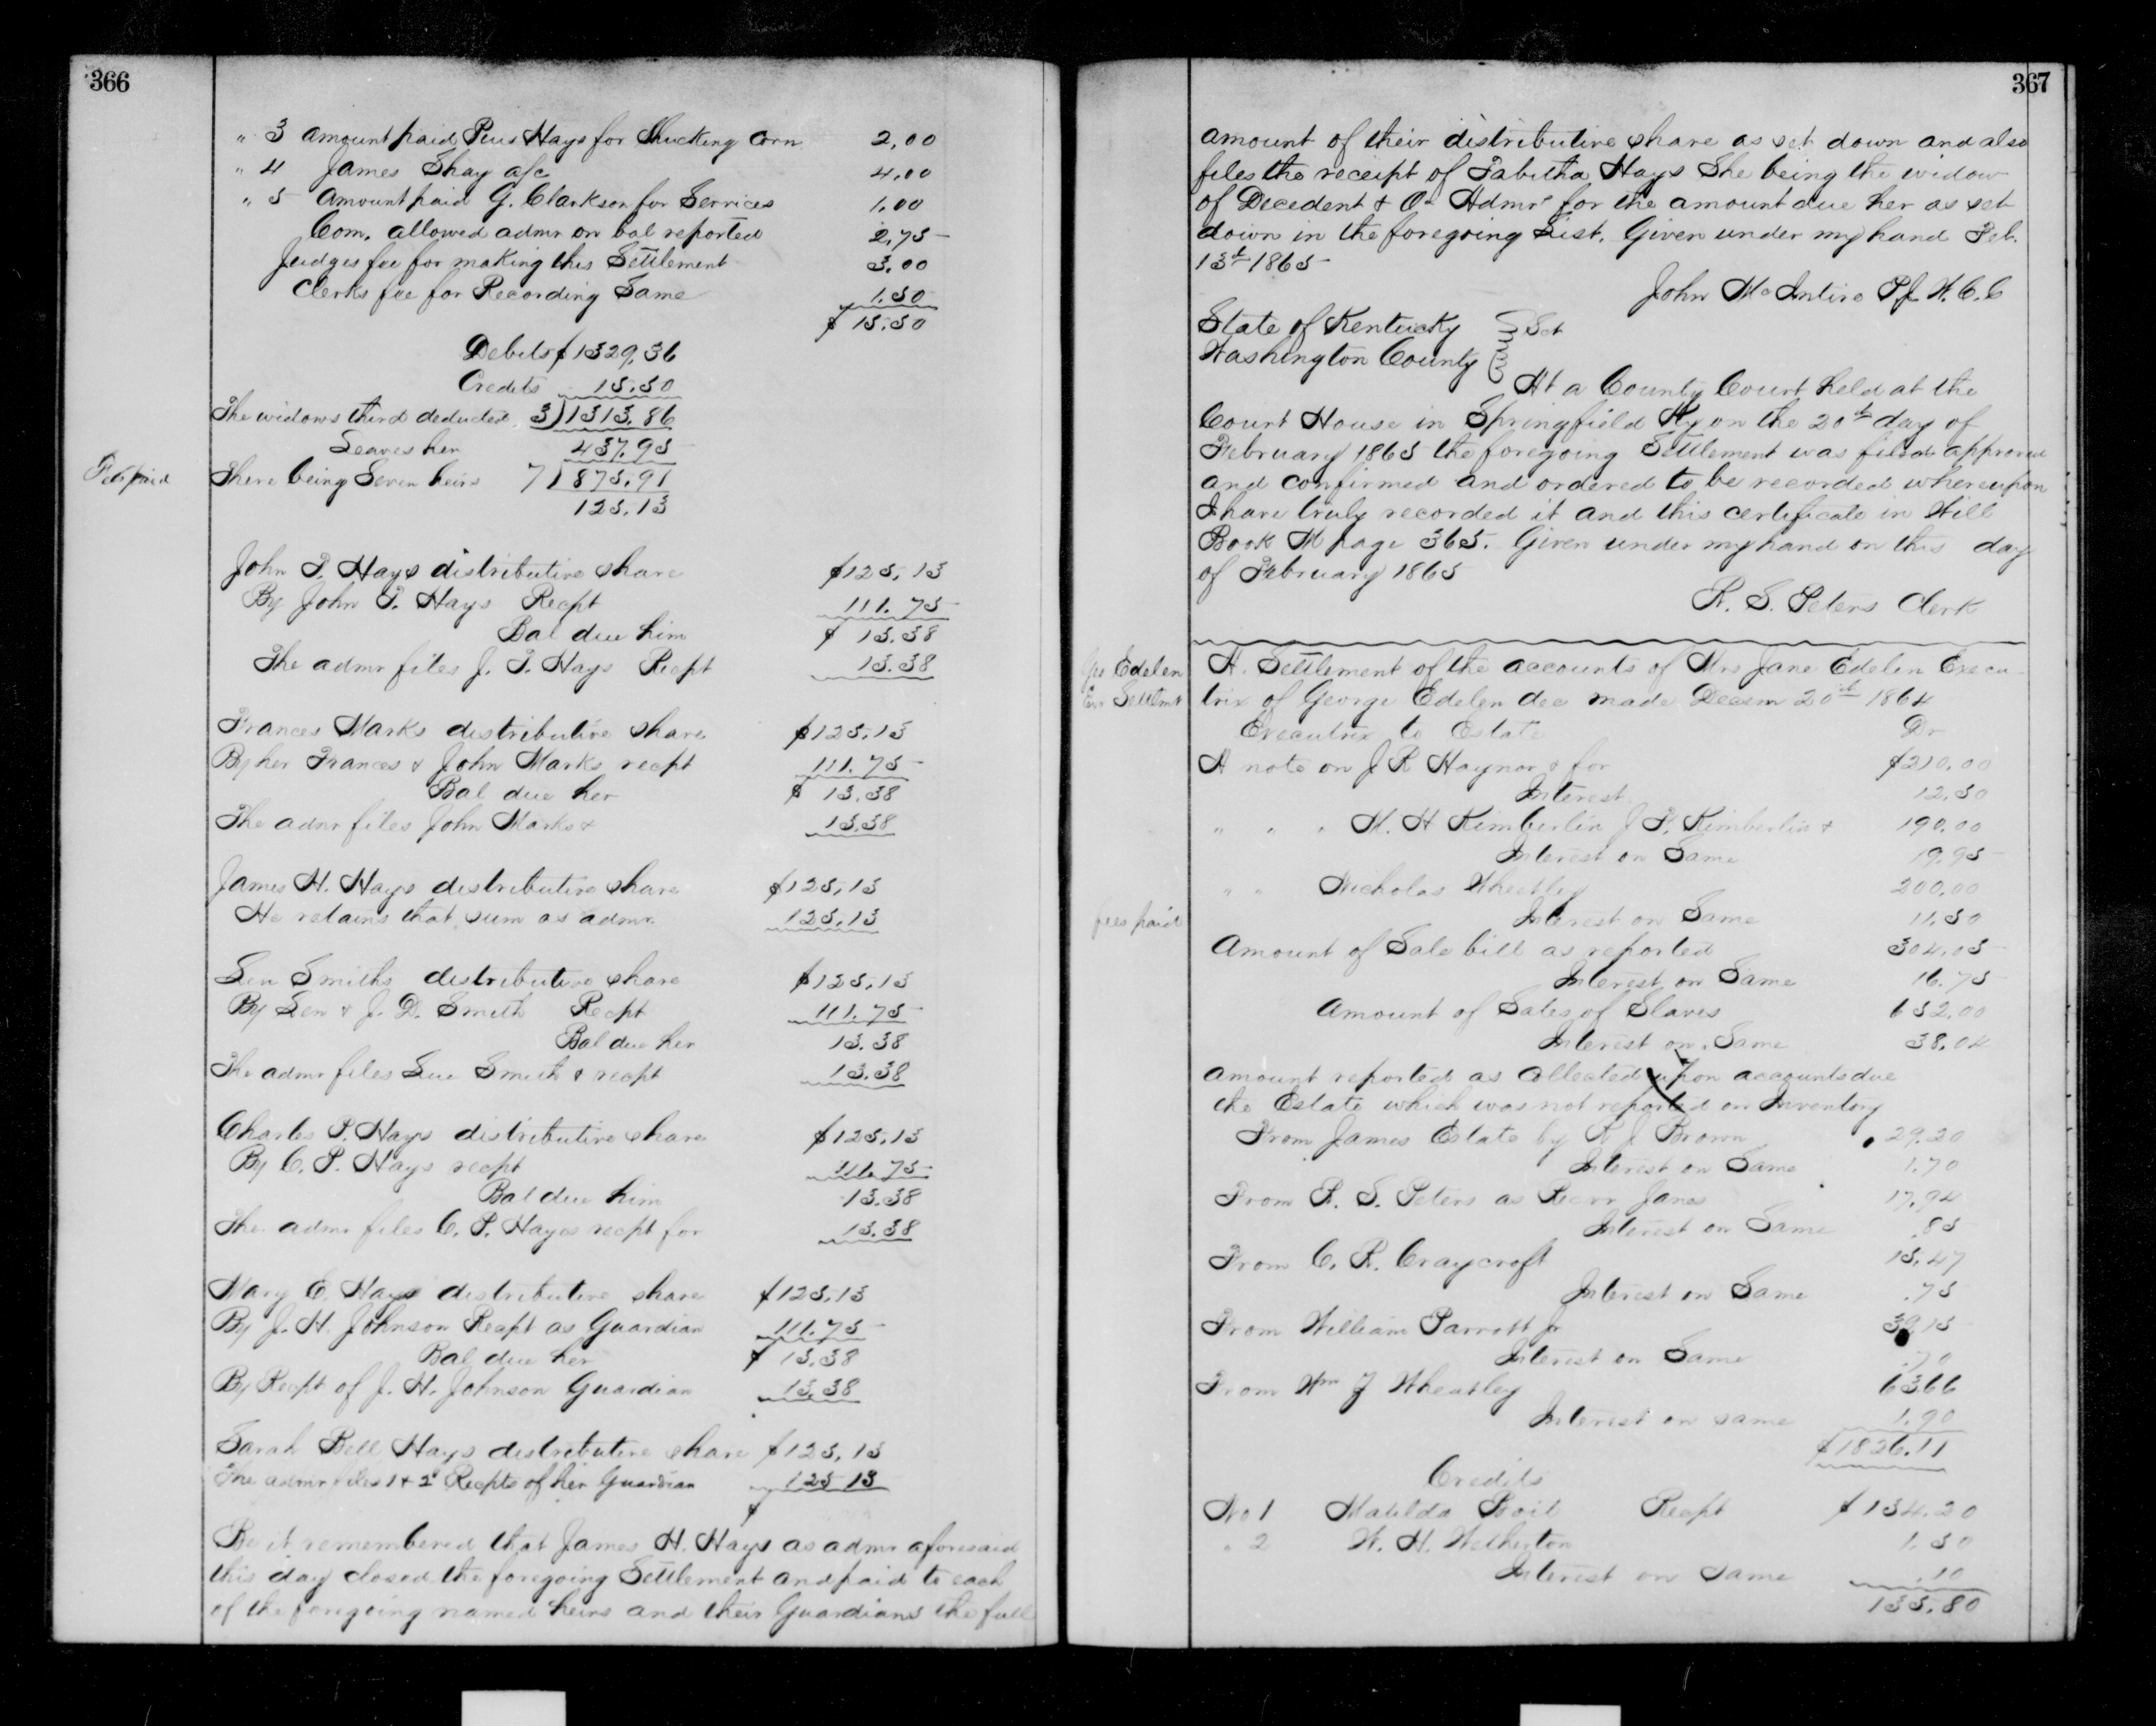 366
" 3 amount paid Pius Hays for Shucking Corn 2,00
" 4 James Shay a/c 4.00
" 5 Amount paid G. Clarkson for Services 1,00
Com. allowed admr on bal reported 2,75
Judges fee for making this Settlement 3.00
Clerks fee for Recording Same 1.50
$ 15.50
Debits $1329,36
Credits 15.50
The widows third deducted 3)1313.86
Leaves her 437.95
Fee paid
There being Seven heirs 7)875.91
125.13
John T. Hays distributive share $125,13
By John T. Hays Recpt 111.75
Bal due him $ 13.38
The admr files J. T. Hays Recpt 13.38
Frances Marks distributive share $125,13
By her Frances & John Marks recpt 111.75
Bal due her $ 13.38
The admr files John Marks & 13.38
James H. Hays distributive share $125,13
He retains that sum as admr 125.13
Len Smiths distributive share $125,13
By Len & J. D. Smith Recpt 111.75
Bal due her 13.38
The admr files Smith & recpt 13.38
Charles P. Hays distributive share $125,13
By C. P. Hays recpt 111.75
Bal due him 13.38
The admr files C. P. Hays recpt for 13.38
Mary E. Hays distributive share $125,13
By J. H. Johnson Recpt as Guardian 111.75
Bal due her $ 13.38
By Recpt of J. H. Johnson Guardian 13.38
Sarah Bell Hays distributive share $125,13
The admr files 1 & 2d Recpts of her Guardian 125 13
$
Be it remembered that James H. Hays as admr aforesaid
this day closed the foregoing Settlement and paid to each
of the foregoing named heirs and their Guardians the full
367
amount of their distributive share as set down and also
files the receipt of Tabitha Hays She being the widow
of Decedent & for the amount due her as set
down in the foregoing List. Given under my hand Feb.
13th 1865
John McIntire P.J. W.C.C
State of Kentucky } Sct
Washington County
At a County Court held at the
Court House in Springfield Ky on the 20th day of
February 1865 the foregoing Settlement was filed approved
and confirmed and ordered to be recorded whereupon
I have truly recorded it and this certificate in Will
Book M page 365. Given under my hand on this day
of February 1865
W. S. Peters Clerk
Geo Edelen
Exr Settlmt
A. Settlement of the accounts of Mrs Jane Edelen Execu
trix of George Edelen dec made Decem 20th 1864
Executrix to Estate Dr
A note on J R Haynor & for $210.00
Interest 12.50
" " " M. H Kimberlin J P. Kimberlin & 190.00
Interest on Same 19.95
" " Nicholas Wheatley 200.00
fees paid
Interest on Same 11.50
Amount of Sale bill as reported 304.05
Interest on Same 16.75
Amount of Sales of Slaves 652.00
Interest on Same 38.04
amount reported as Collected upon accounts due
the Estate which was not reported on Inventory
From James Estate by R J Brown 29.20
Interest on Same 1.70
From W. S. Peters as Janes 17.94
Interest on Same .85
From C. R. Craycroft 15.47
Interest on Same .75
From William Parrott Jr
Interest on Same .70
From Wm J Wheatley 63.66
Interest on same 1.90
$1826.11
Credits
No 1 Matilda Recpt $134.20
" 2 W. H. Wetherton 1.50
Interest on same .10
135.80